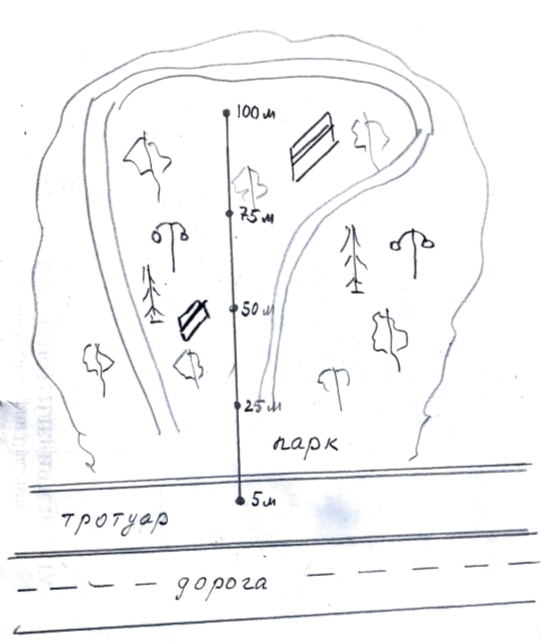 100 м
75 м
50 м
25 м
парк
5 м
тротуар
дорога